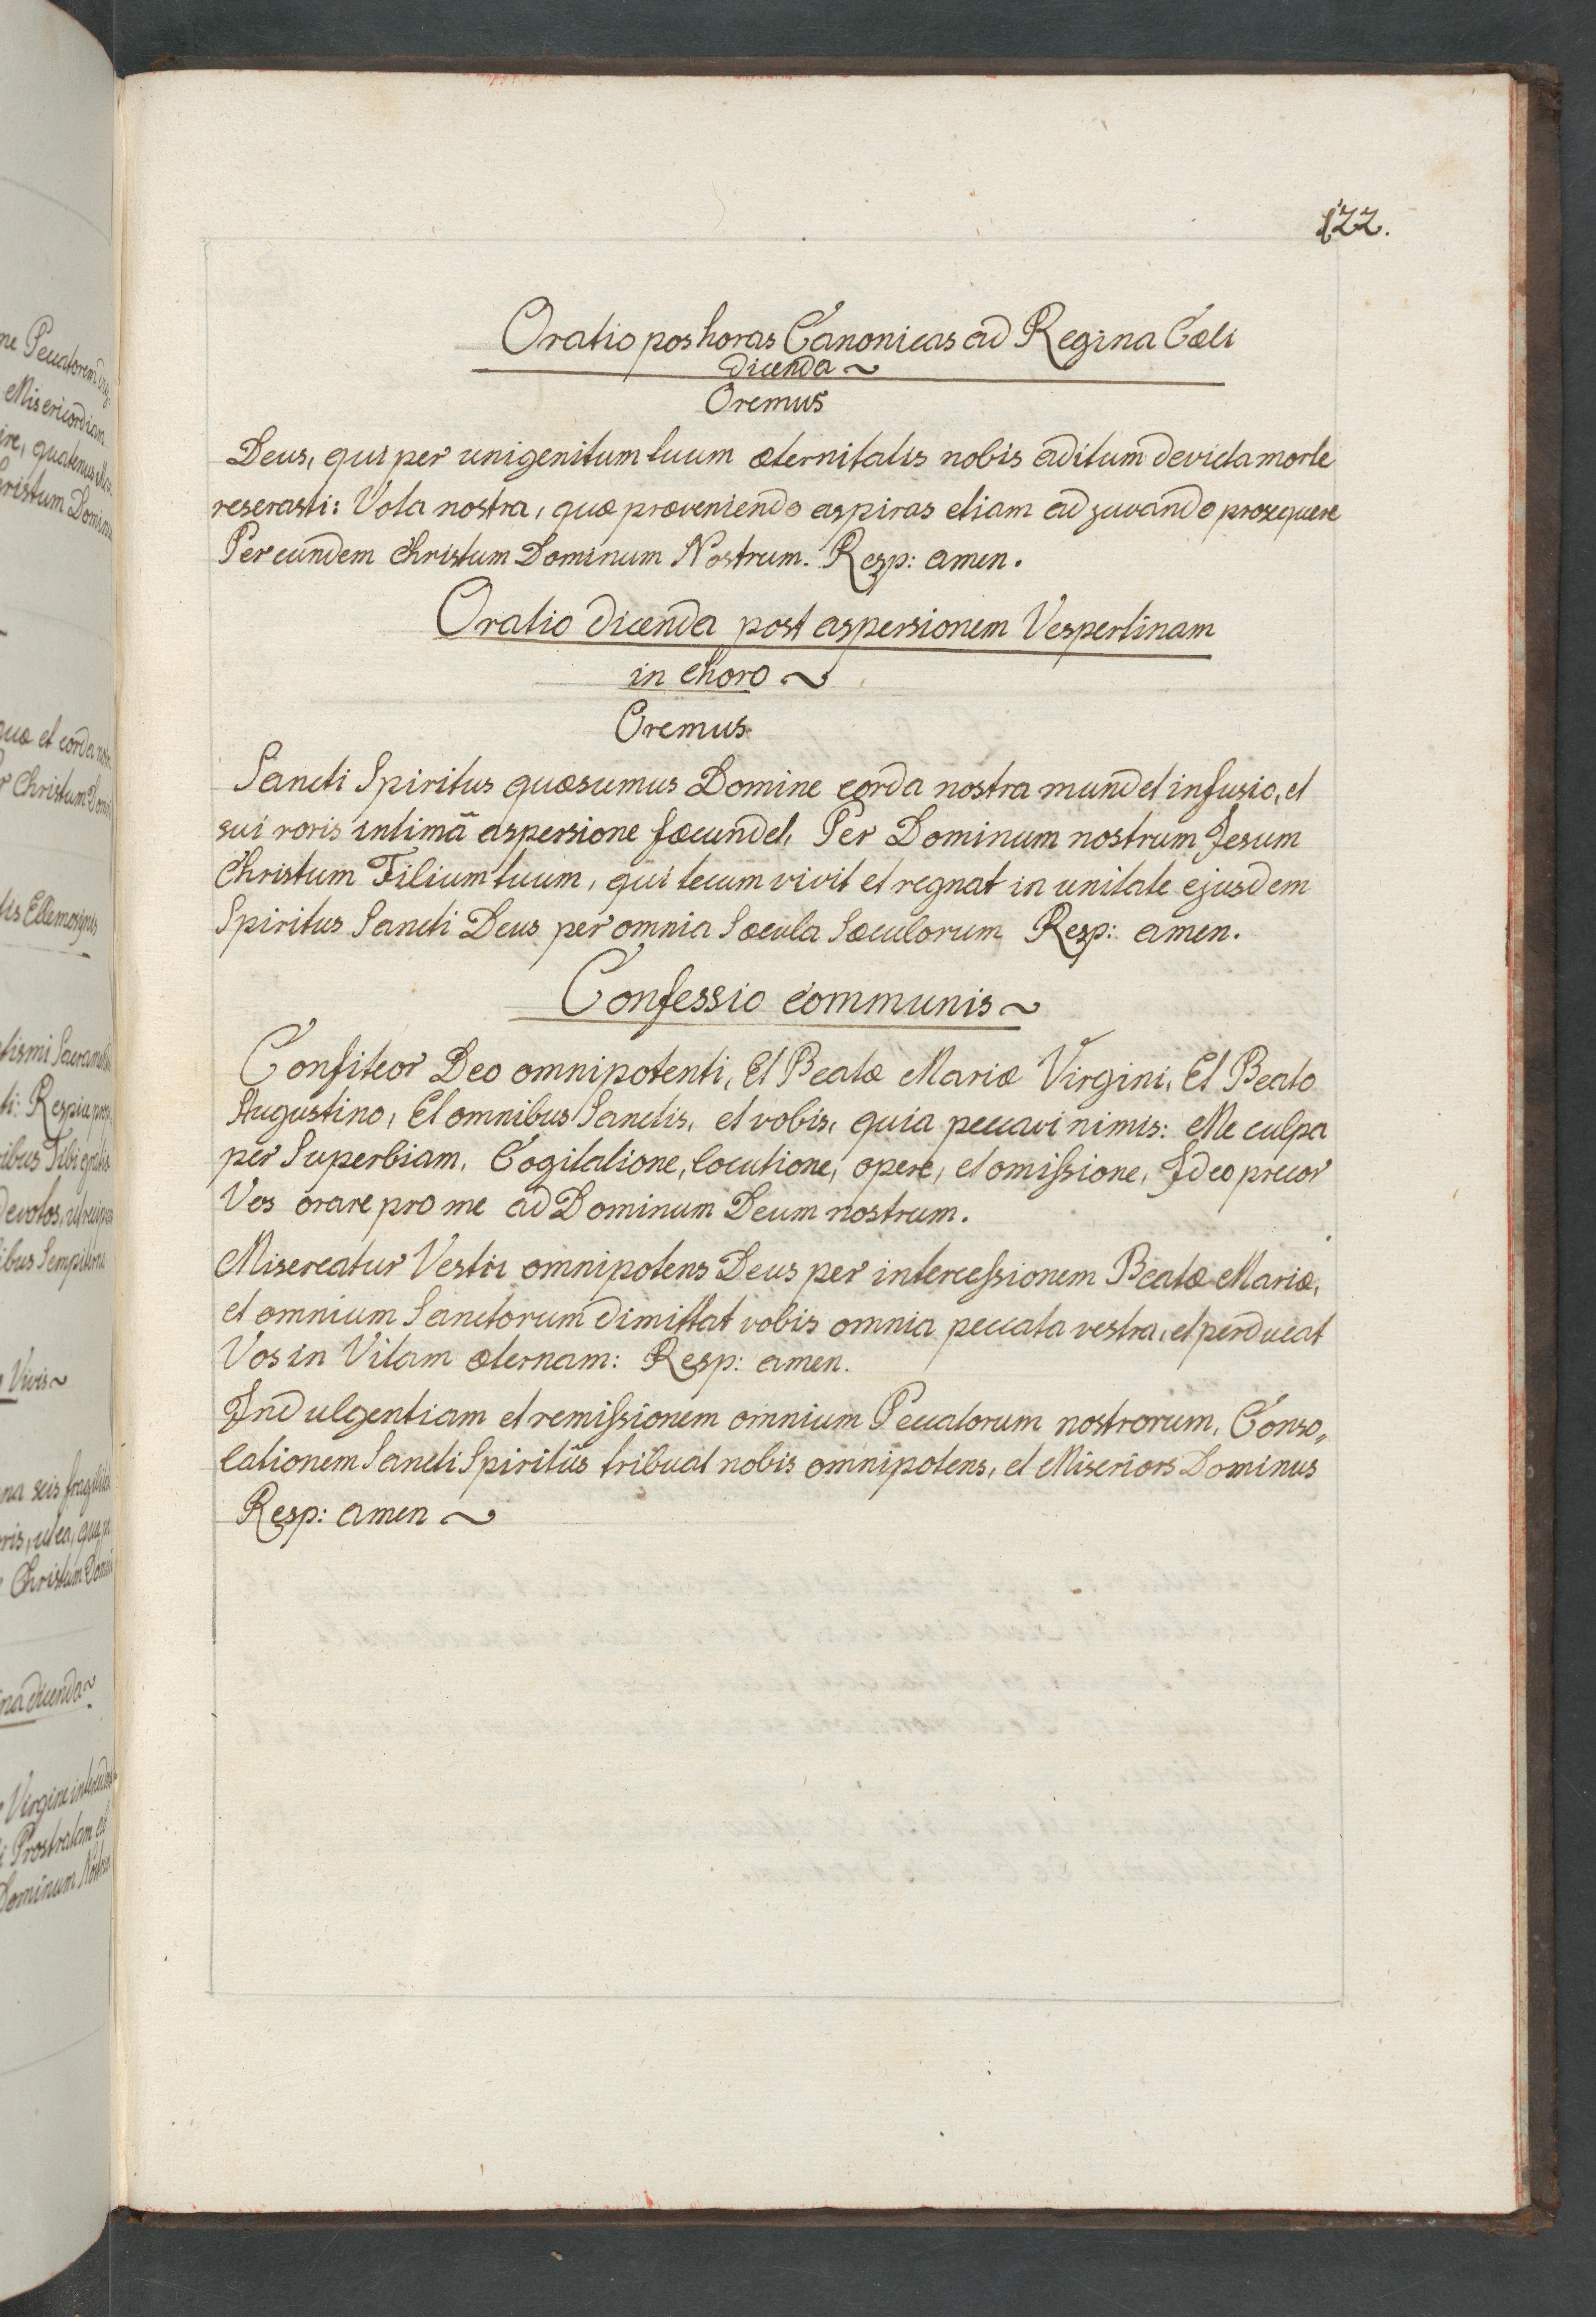 122.
Oratio pos horas Canonicas ad Regina Cæli
dicenda ~
Oremus
Deus, qui per unigenitum tuum æternitatis nobis aditum devicta morte
reserasti: Vota nostra, quæ præveniendo aspiras etiam adjuvando prosequere
Per eundem Christum Dominum Nostrum. Resp: amen.
Oratio dicenda post aspersionem Vespertinam
in choro ~
Oremus
Sancti Spiritus quæsumus Domine corda nostra mundet infusio, et
sui roris intimâ aspersione fœcundet, Per Dominum nostrum Jesum
Christum Filium tuum, qui tecum vivit et regnat in unitate ejusdem
Spiritus Sancti Deus per omnia Sæcula Sæculorum Resp: amen.
Confessio communis ~
Confiteor Deo omnipotenti, Et Beatæ Mariæ Virgini, Et Beato
Augustino, Et omnibus Sanctis, et vobis, quia peccavi nimis: Me culpa
per Superbiam, Cogitatione, locutione, opere, et omissione, Ideo precor
Vos orare pro me ad Dominum Deum nostrum.
Misereatur Vestri omnipotens Deus per intercessionem Beatæ Mariæ,
et omnium Sanctorum dimittat vobis omnia peccata vestra, et perducat
Vos in Vitam æternam: Resp: amen.
Indulgentiam et remissionem omnium Peccatorum nostrorum, Conso„
lationem Sancti Spiritûs tribuat nobis omnipotens, et Miseriors Dominus
Resp: amen ~